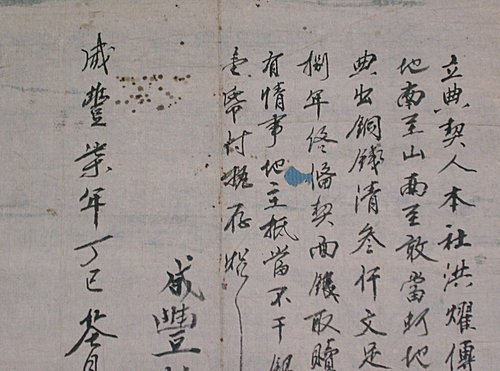 立典契人本社洪耀傳
地南至山西至敢當町地
典出銅錢清叁仟文足
捌年終備契面錢取贖
有情事地主抵當不干銀
契付執存炤
咸豐
咸豐柒年丁巳叁月